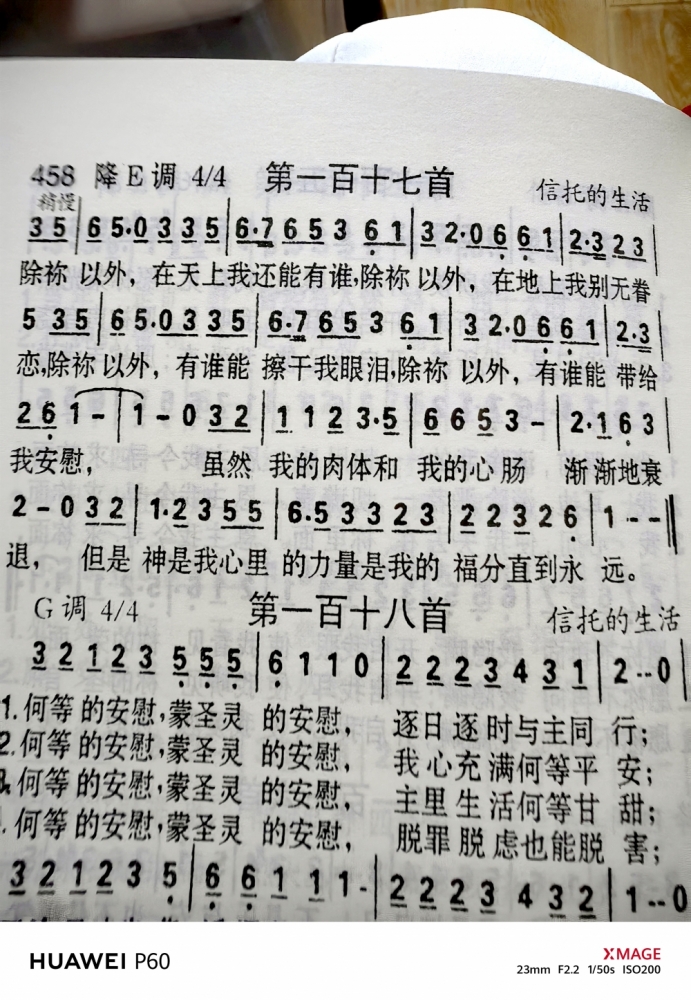 458 降E调 4/4 第一百十七首 信托的生活
稍慢
3 5 | 6 5·0 3 3 5 | 6·7 6 5 3 6 1 | 3 2·0 6 6 1 | 2·3 2 3 |
除祢 以外，在天上我还能有谁，除祢 以外，在地上我别无眷
5 3 5 | 6 5·0 3 3 5 | 6·7 6 5 3 6 1 | 3 2·0 6 6 1 | 2·3 |
恋，除祢 以外，有谁能 擦干我眼泪，除祢 以外，有谁能 带给
2 6 1 - | 1 - 0 3 2 | 1 1 2 3·5 | 6 6 5 3 - | 2·1 6 3
我安慰， 虽然 我的肉体和 我的心肠 渐渐地衰
2 - 0 3 2 | 1·2 3 5 5 | 6·5 3 3 2 3 | 2 2 3 2 6 | 1 - - ‖
退， 但是 神是我心里 的力量是我的 福分直到永 远。
G 调 4/4 第一百十八首 信托的生活
3 2 1 2 3 5 5 5 | 6 1 1 0 | 2 2 2 3 4 3 1 | 2 - - 0 |
1. 何等 的安慰，蒙圣灵 的安慰， 逐日 逐 时与主同 行；
2. 何等 的安慰，蒙圣灵 的安慰， 我 心 充 满何等平 安；
3. 何等 的安慰，蒙圣灵 的安慰， 主里 生 活何等甘 甜；
. 何等 的安慰，蒙圣灵 的安慰， 脱罪 脱 虑也能脱 害；
3 2 1 2 3 5 | 6 6 1 1 1 - | 2 2 2 3 4 3 2 | 1 - - 0
HUAWEI P60
XMAGE
23mm F2.2 1/50s ISO200